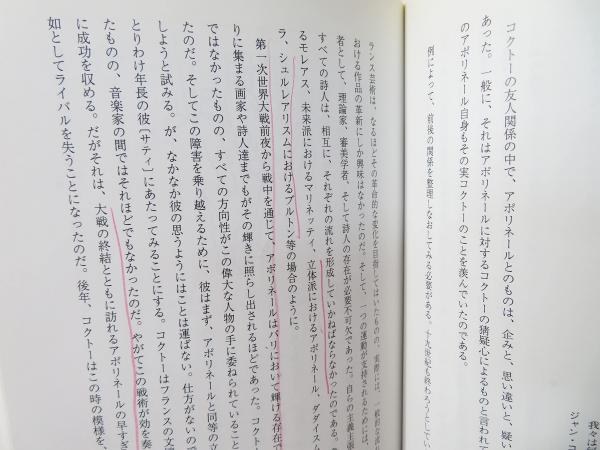 我々は
ジャン・コ
コクトーの友人関係の中で、アポリネールとのものは、企みと、思い違いと、疑い
あった。一般に、それはアポリネールに対するコクトーの猜疑心によるものと言われて
のアポリネール自身もその実コクトーのことを羨んでいたのである。
例によって、前後の関係を整理しなおしてみる必要がある。十九世紀も終わろうとしてい
ランス芸術は、なるほどその革命的な変化を目指してはいたものの、実際には、一般的な流れ
おける作品の革新にしか興味はなかったのだ。そして、一つの運動が支持されるためには、
者として、理論家、審美学者、そして詩人の存在が必要不可欠であった。自らの主義主張
すべての詩人は、相互に、それぞれの流れを形成していかねばならなかったのである。
るモレアス、未来派におけるマリネッティ、立体派におけるアポリネール、ダダイスム
ラ、シュルレアリスムにおけるブルトン等の場合のように。
第一次世界大戦前夜から戦中を通じて、アポリネールはパリにおいて輝ける存在で
りに集まる画家や詩人達までもがその輝きに照らし出されるほどであった。コクト
ではなかったものの、すべての方向性がこの偉大な人物の手に委ねられていること
たのだ。そしてこの障害を乗り越えるために、彼はまず、アポリネールと同等の立
しようと試みる。が、なかなか彼の思うようにはことは運ばない。仕方がないので
とりわけ年長の彼〔サティ〕にあたってみることにする。コクトーはフランスの文壇
たものの、音楽家の間ではそれほどでもなかったのだ。やがてこの戦術が功を奏
に成功を収める。だがそれは、大戦の終結とともに訪れるアポリネールの早すぎ
如としてライバルを失うことになったのだ。後年、コクトーはこの時の模様を、